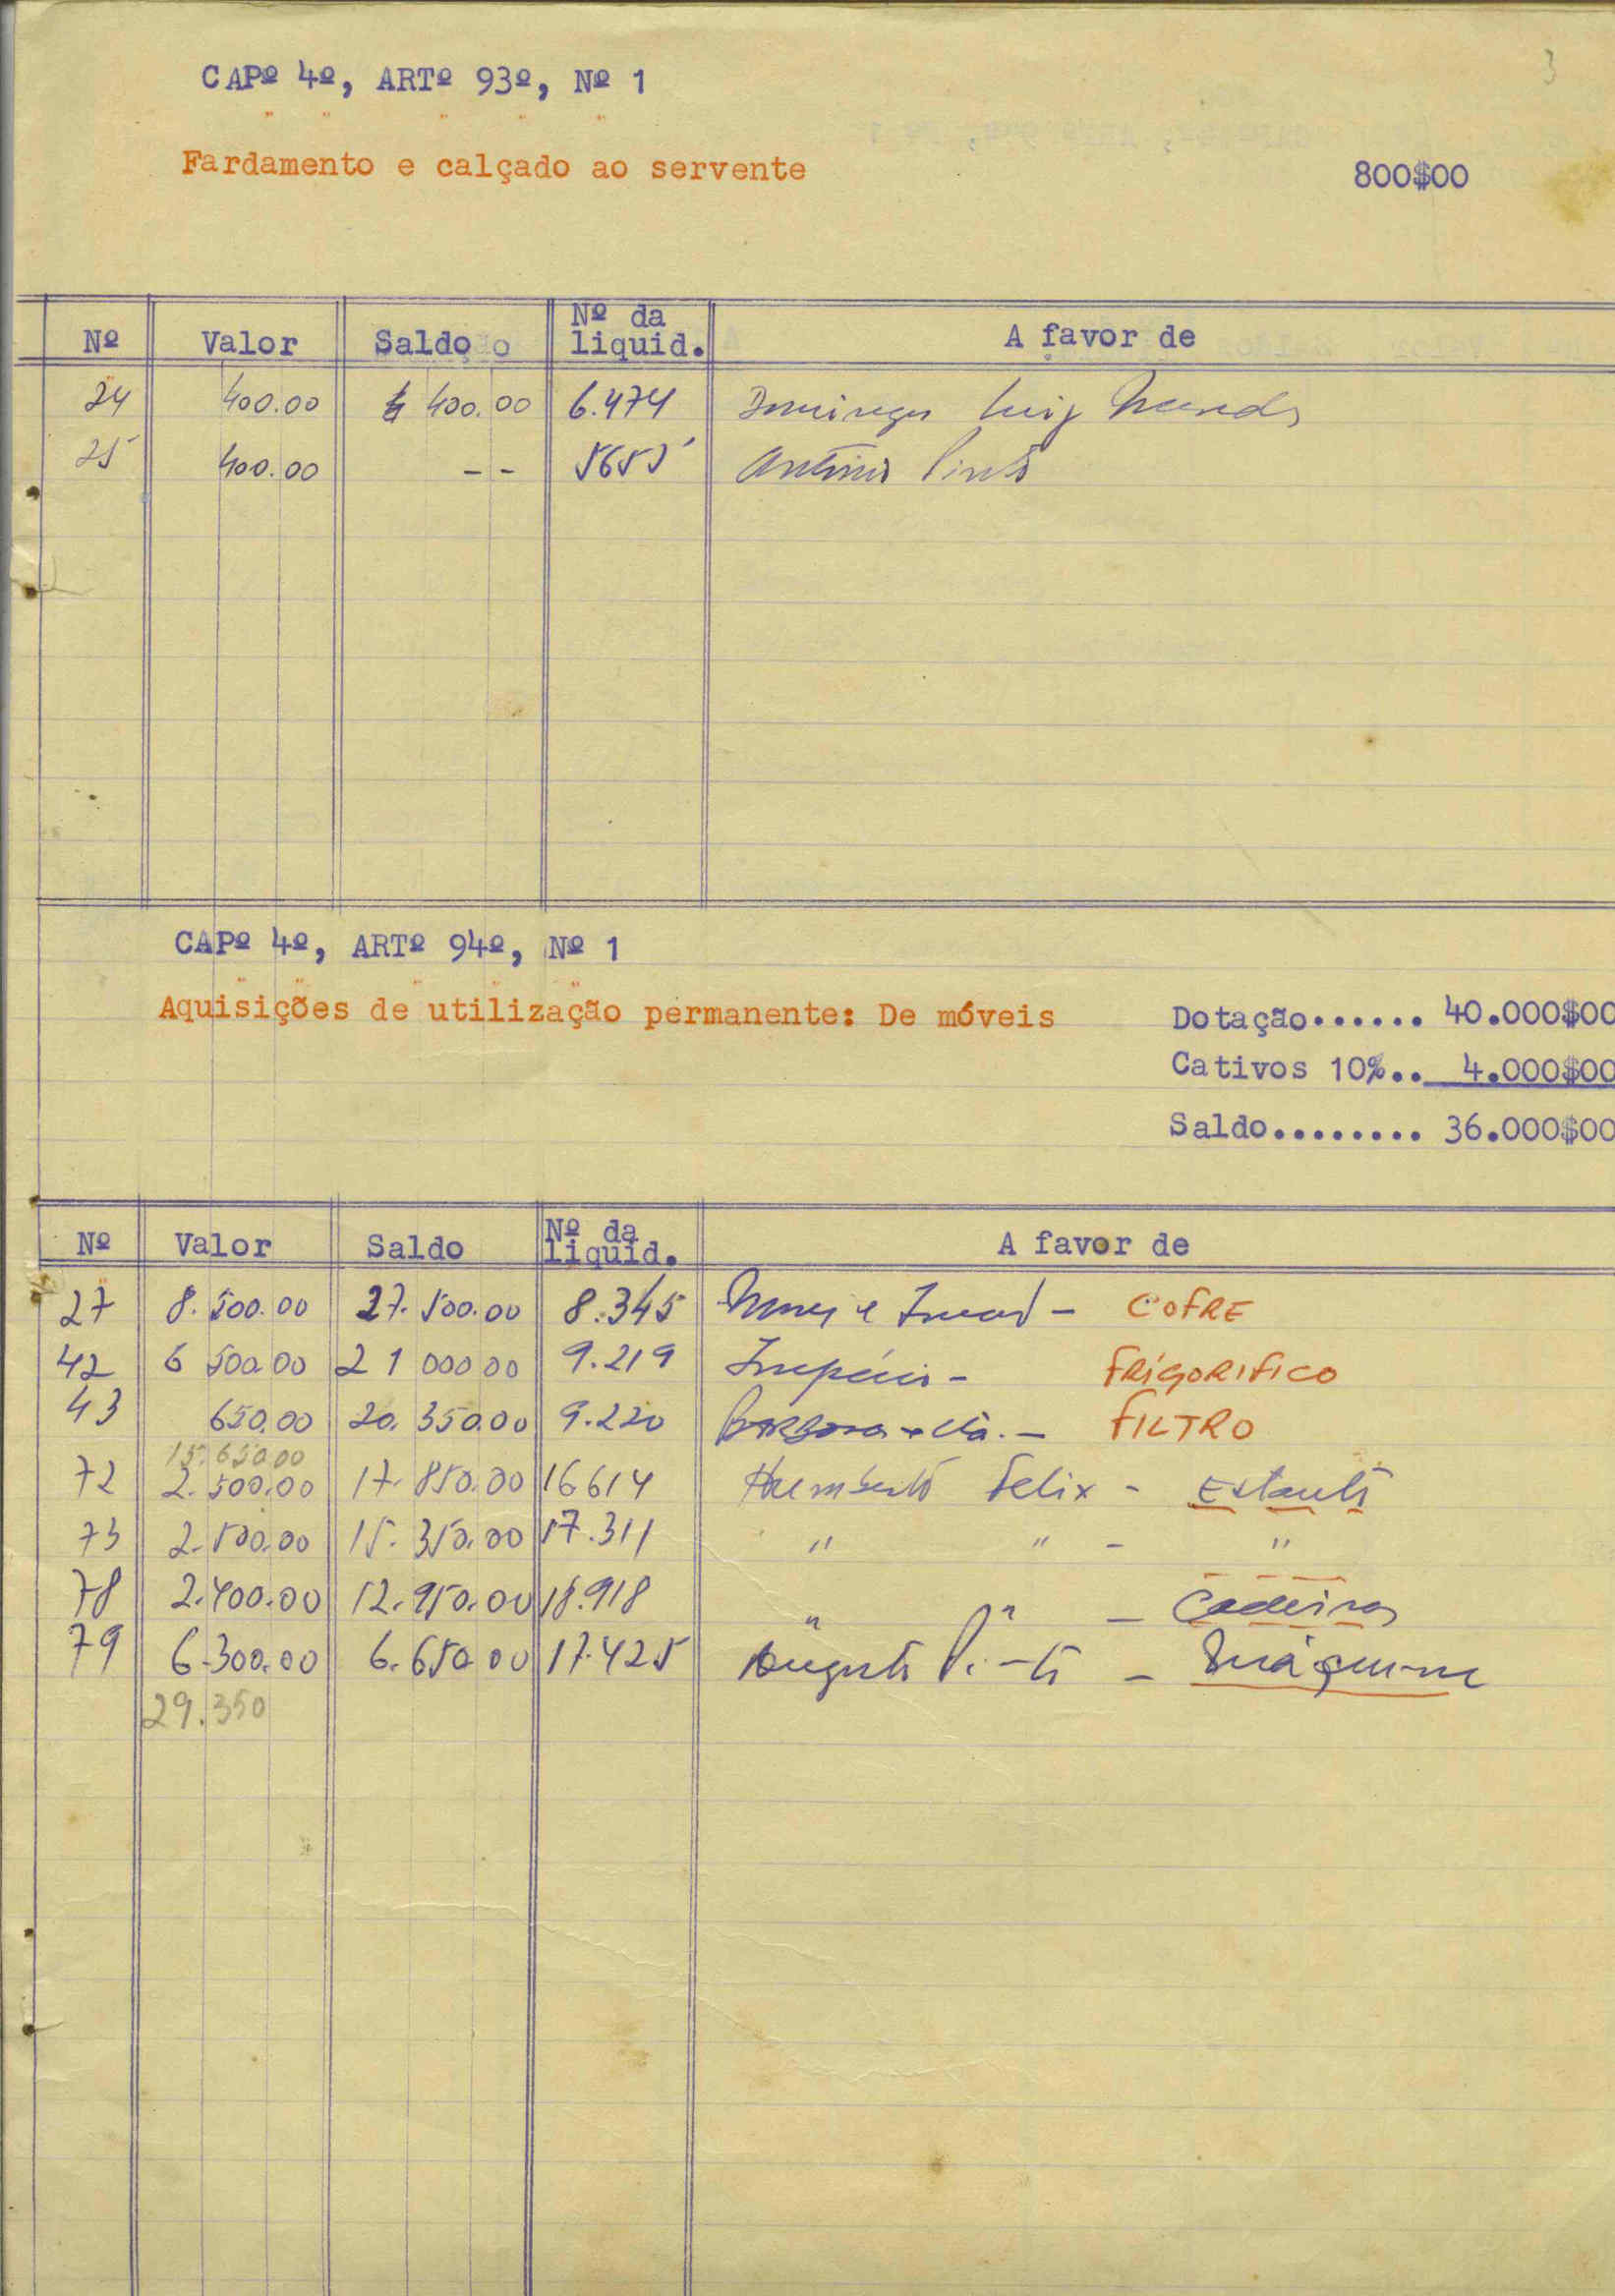 3
CAPº 4º, ARTº 93º, Nº 1
Fardamento e calçado ao servente 800$00
Nº Valor Saldo Nº da liquid. A favor de
24 400.00 400.00 6.474 Domingos Luiz Mendes
25 400.00 -- 5655 António Pinto
CAPº 4º, ARTº 94º, Nº 1
Aquisições de utilização permanente: De móveis Dotação...... 40.000$00
Cativos 10%.. 4.000$00
Saldo........ 36.000$00
Nº Valor Saldo Nº da liquid. A favor de
27 8.500.00 27.500.00 8.345 - COFRE
42 6 500.00 21 000 00 9.219 Império - FRIGORIFICO
43 650.00 20.350.00 9.220 Barbosa e Cia. - FILTRO
15.650.00
72 2.500.00 17.850.00 16614 Humberto Felix - Estante
73 2.500.00 15.350.00 17.311 " " - "
78 2.400.00 12.950.00 18.918 " " - Cadeiras
79 6.300.00 6.650 00 17.425 Augusto Pinto - Máquina
29.350